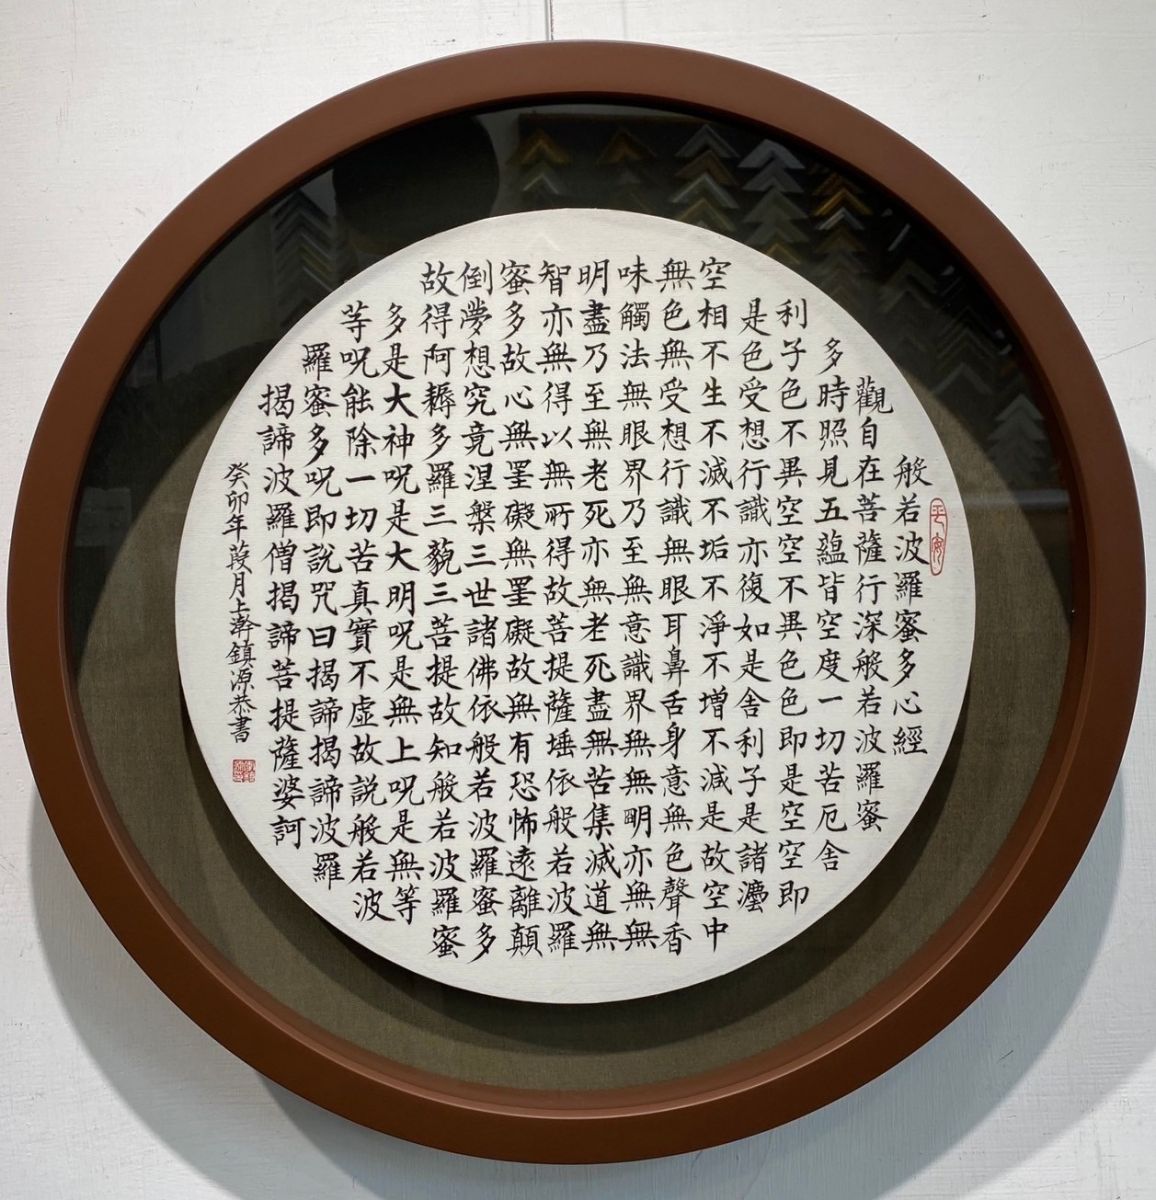 平安
般若波羅蜜多心經
觀自在菩薩行深般若波羅蜜
多時照見五蘊皆空度一切苦厄舍
利子色不異空空不異色色即是空空即
是色受想行識亦復如是舍利子是諸灋
空相不生不滅不垢不淨不增不減是故空中
無色無受想行識無眼耳鼻舌身意無色聲香
味觸法無眼界乃至無意識界無無明亦無無
明盡乃至無老死亦無老死盡無苦集滅道無
智亦無得以無所得故菩提薩埵依般若波羅
蜜多故心無罣礙無罣礙故無有恐怖遠離顛
倒夢想究竟涅槃三世諸佛依般若波羅蜜多
故得阿耨多羅三藐三菩提故知般若波羅蜜
多是大神呪是大明呪是無上呪是無等
等呪能除一切苦真實不虛故説般若波
羅蜜多呪即説咒曰揭諦揭諦波羅
揭諦波羅僧揭諦菩提薩婆訶
癸卯年葭月上澣鎮源恭書